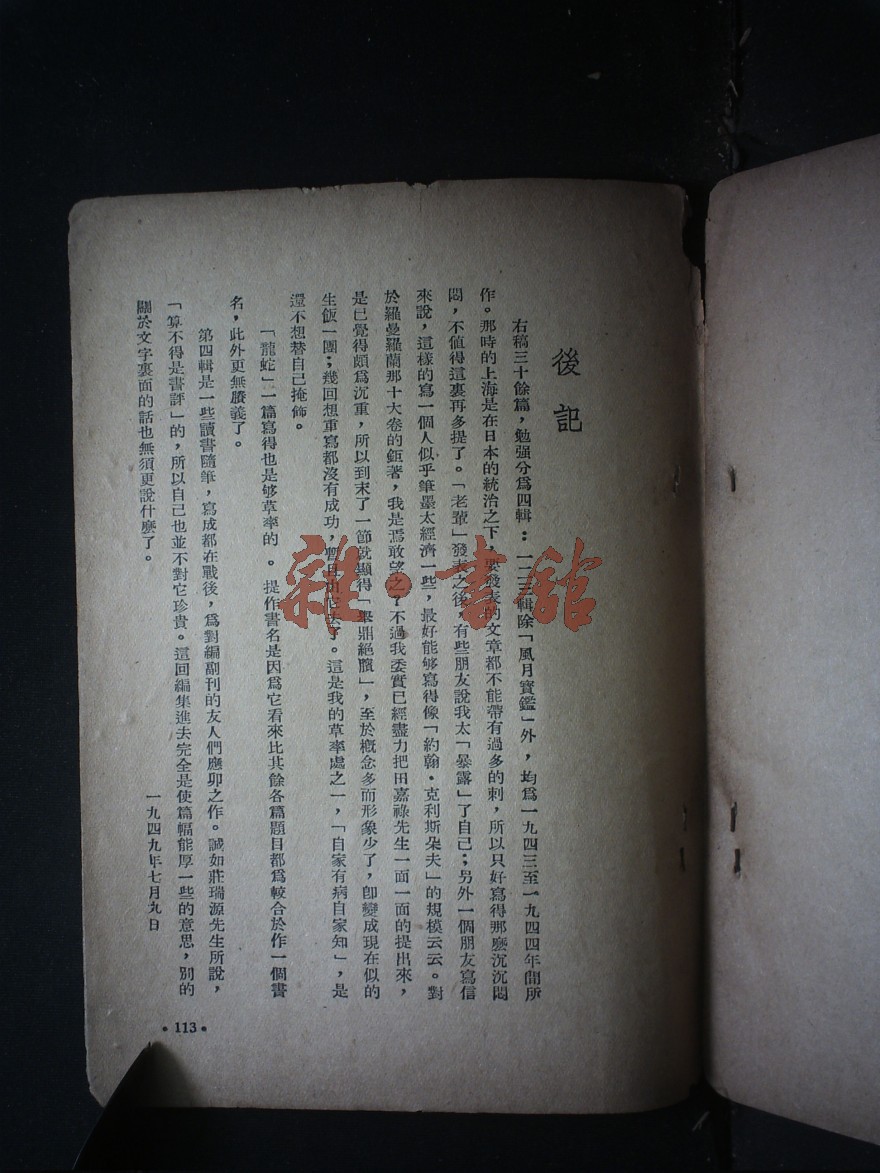 後記
右稿三十餘篇，勉强分爲四輯：一二三輯除「風月寶鑑」外，均爲一九四三至一九四四年間所
作。那時的上海是在日本的統治之下，要發表的文章都不能帶有過多的刺，所以只好寫得那麽沉沉悶
悶，不値得這裏再多提了。「老輩」發表之後，有些朋友說我太「暴露」了自己；另外一個朋友寫信
來說，這樣的寫一個人似乎筆墨太經濟一些，最好能够寫得像「約翰·克利斯朵夫」的規模云云。對
於羅曼羅蘭那十大卷的鉅著，我是焉敢望之？不過我委實已經盡力把田嘉祿先生一面一面的提出來，
是已覺得頗爲沉重，所以到末了一節就顯得「舉鼎絕臏」，至於槪念多而形象少了，卽變成現在似的
生飯一團；幾回想重寫都沒有成功，暫且由它去了。這是我的草率處之一，「自家有病自家知」，是
還不想替自己掩飾。
「龍蛇」一篇寫得也是够草率的。提作書名是因爲它看來比其餘各篇題目都爲較合於作一個書
名，此外更無賸義了。
第四輯是一些讀書隨筆，寫成都在戰後，爲對編副刊的友人們應卯之作。誠如莊瑞源先生所說，
「算不得是書評」的，所以自己也並不對它珍貴。這回編集進去完全是使篇幅能厚一些的意思，別的
關於文字裏面的話也無須更說什麽了。
一九四九年七月九日
•113•
雜·書館